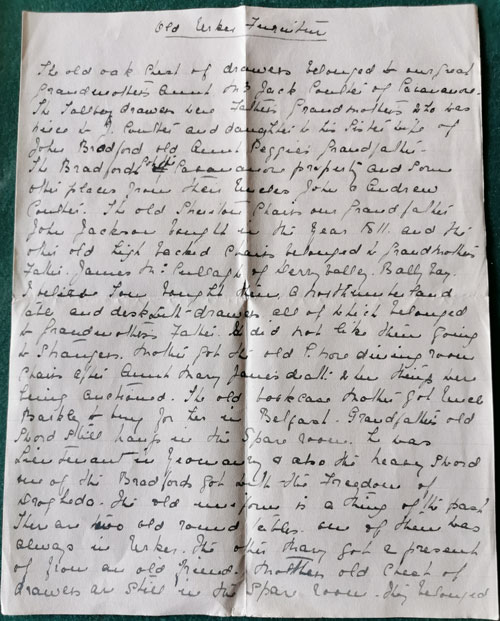 Old Urker Furniture
The old oak chest of drawers belonged to our great
Grandmothers Aunt Mrs Jack Coulter of Cavananore.
The Tallboy drawers were Fathers Grandmothers who was
niece to J. Coulter and daughter to his Sister wife of
John Bradford old Aunt Peggies Grandfather.
The Bradfords got the Cavananore property and some
other places from their Uncles John & Andrew
Coulter. The old Sheraton Chairs our Grandfather
John Jackson bought in the Year 1811. and the
other old high backed Chairs belonged to Grandmothers
Father. James McCullagh of Derryvalley. Ballybay.
I believe Tom bought them, a Northumberland
table, and desk with drawers all of which belonged
to Grandmothers Father. He did not like them going
to Strangers. Mother got the old Urker dining room
Chairs after Aunt Mary Janes death when things were
being auctioned. The old bookcase Mother got Uncle
to buy for her in Belfast. Grandfathers old
Sword still hangs in the Spare room. He was
Lieutenant in Yeomanry & also the heavy Sword
one of the Bradfords got with the Freedom of
Drogheda. The old uniform is a thing of the past
There are two old round tables. one of them was
always in Urker. The other Mary got a present
of from an old friend. Mothers old chest of
drawers are still in the Spare room. They belonged